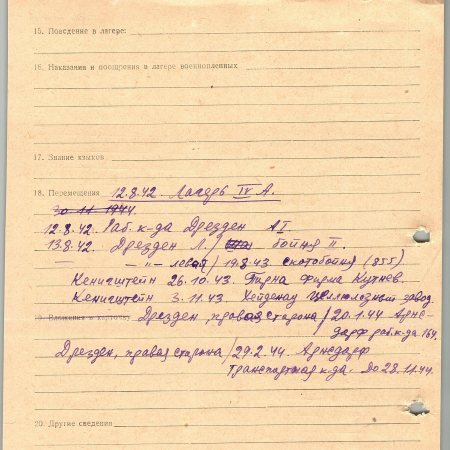 15. Поведение в лагере:
16. Наказания и поощрения в лагере военнопленных
17. Знание языков
18. Перемещения 12.8.42. Лагерь IV А.
30.11.1944.
12.8.42. Раб. к-да Дрезден АI
13.8.42. Дрезден Л./ бойня II.
— " — левая/ 19.8.43 скотобойня (855)
Кенигштейн 26.10.43. Пирна фирма Кутнев.
Кенигштейн 3.11.43. Хейденау Целлюлозный завод.
19. Вложения в карточку Дрезден, правая сторона/20.1.44 Арнс-
дарф раб к-да 164.
Дрезден, правая сторона/29.2.44. Арнсдарф
Транспортная к-да. До 28.11.44.
20. Другие сведения